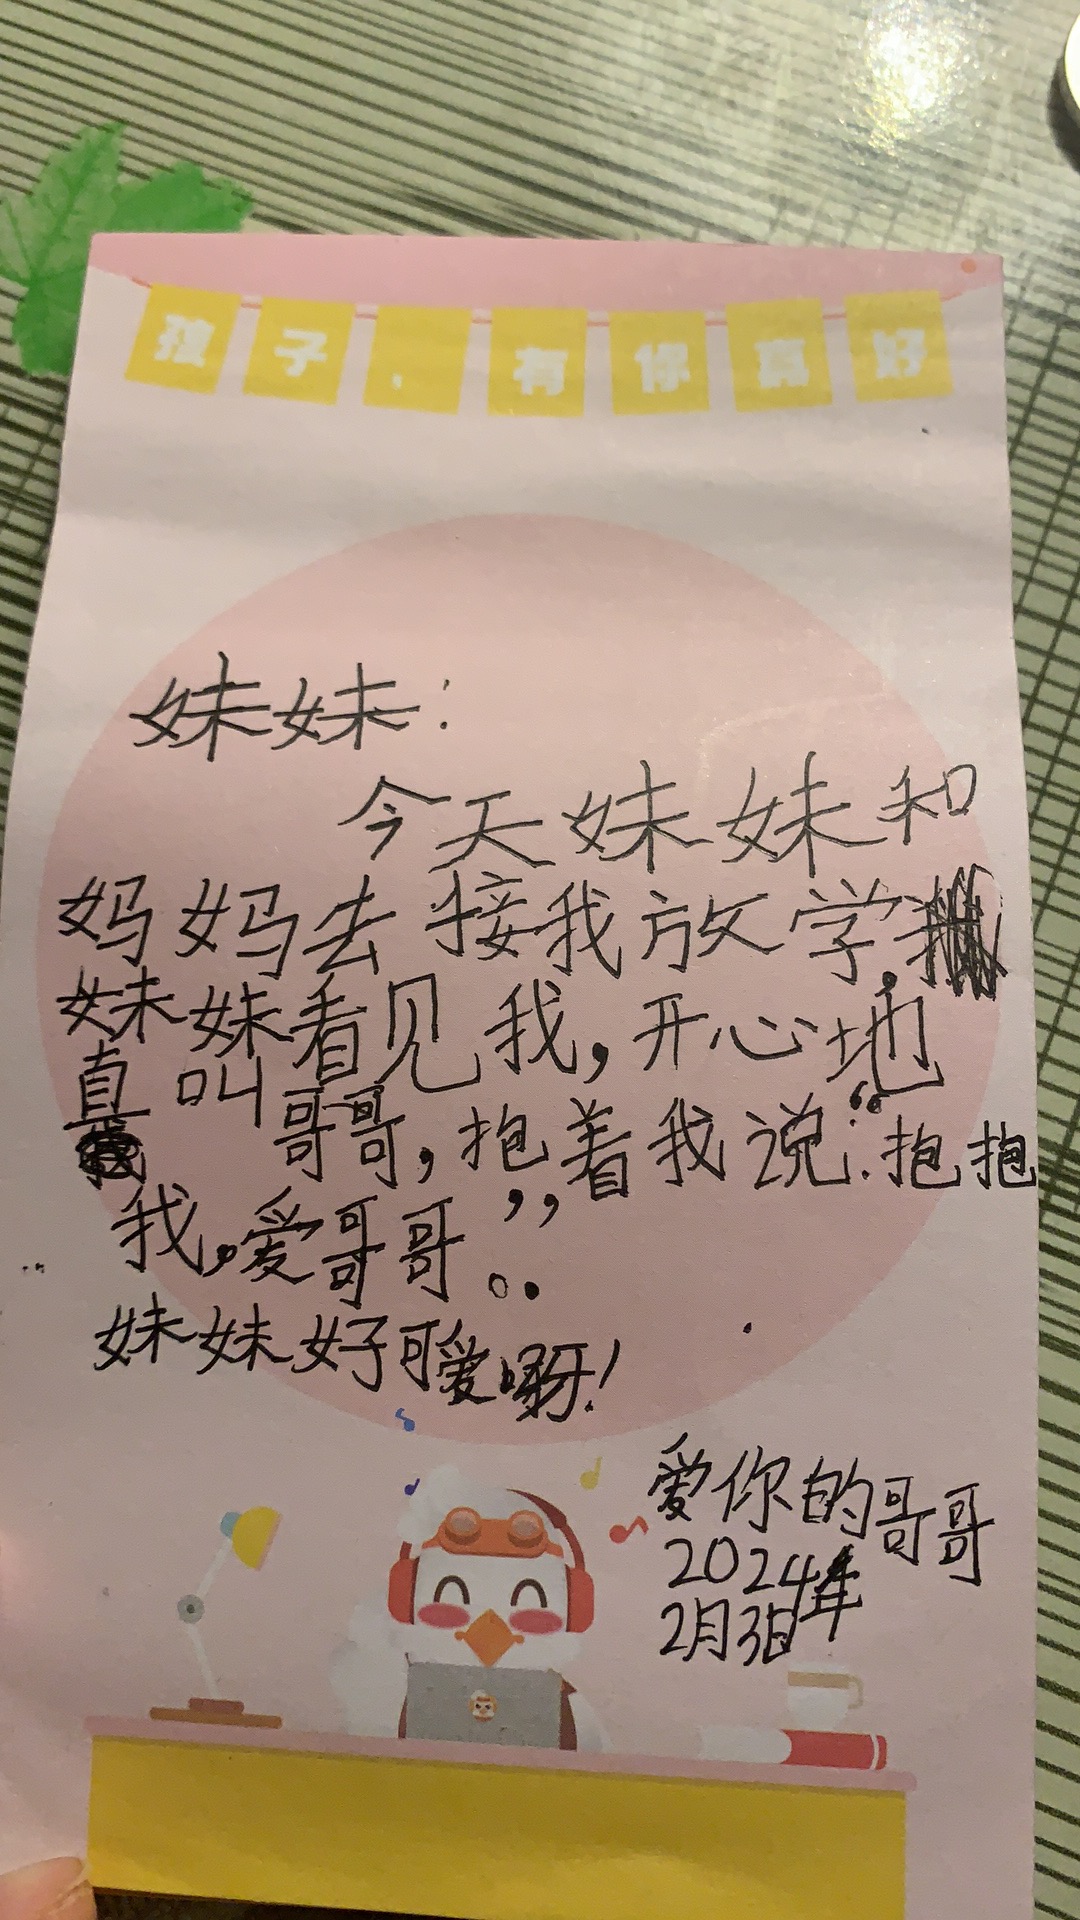 孩子，有你真好
妹妹：
今天妹妹和
妈妈去接我放学，
妹妹看见我，开心地
直叫哥哥，抱着我说：“抱抱
我，爱哥哥”。
妹妹好可爱呀！
爱你的哥哥
2024年
2月3日